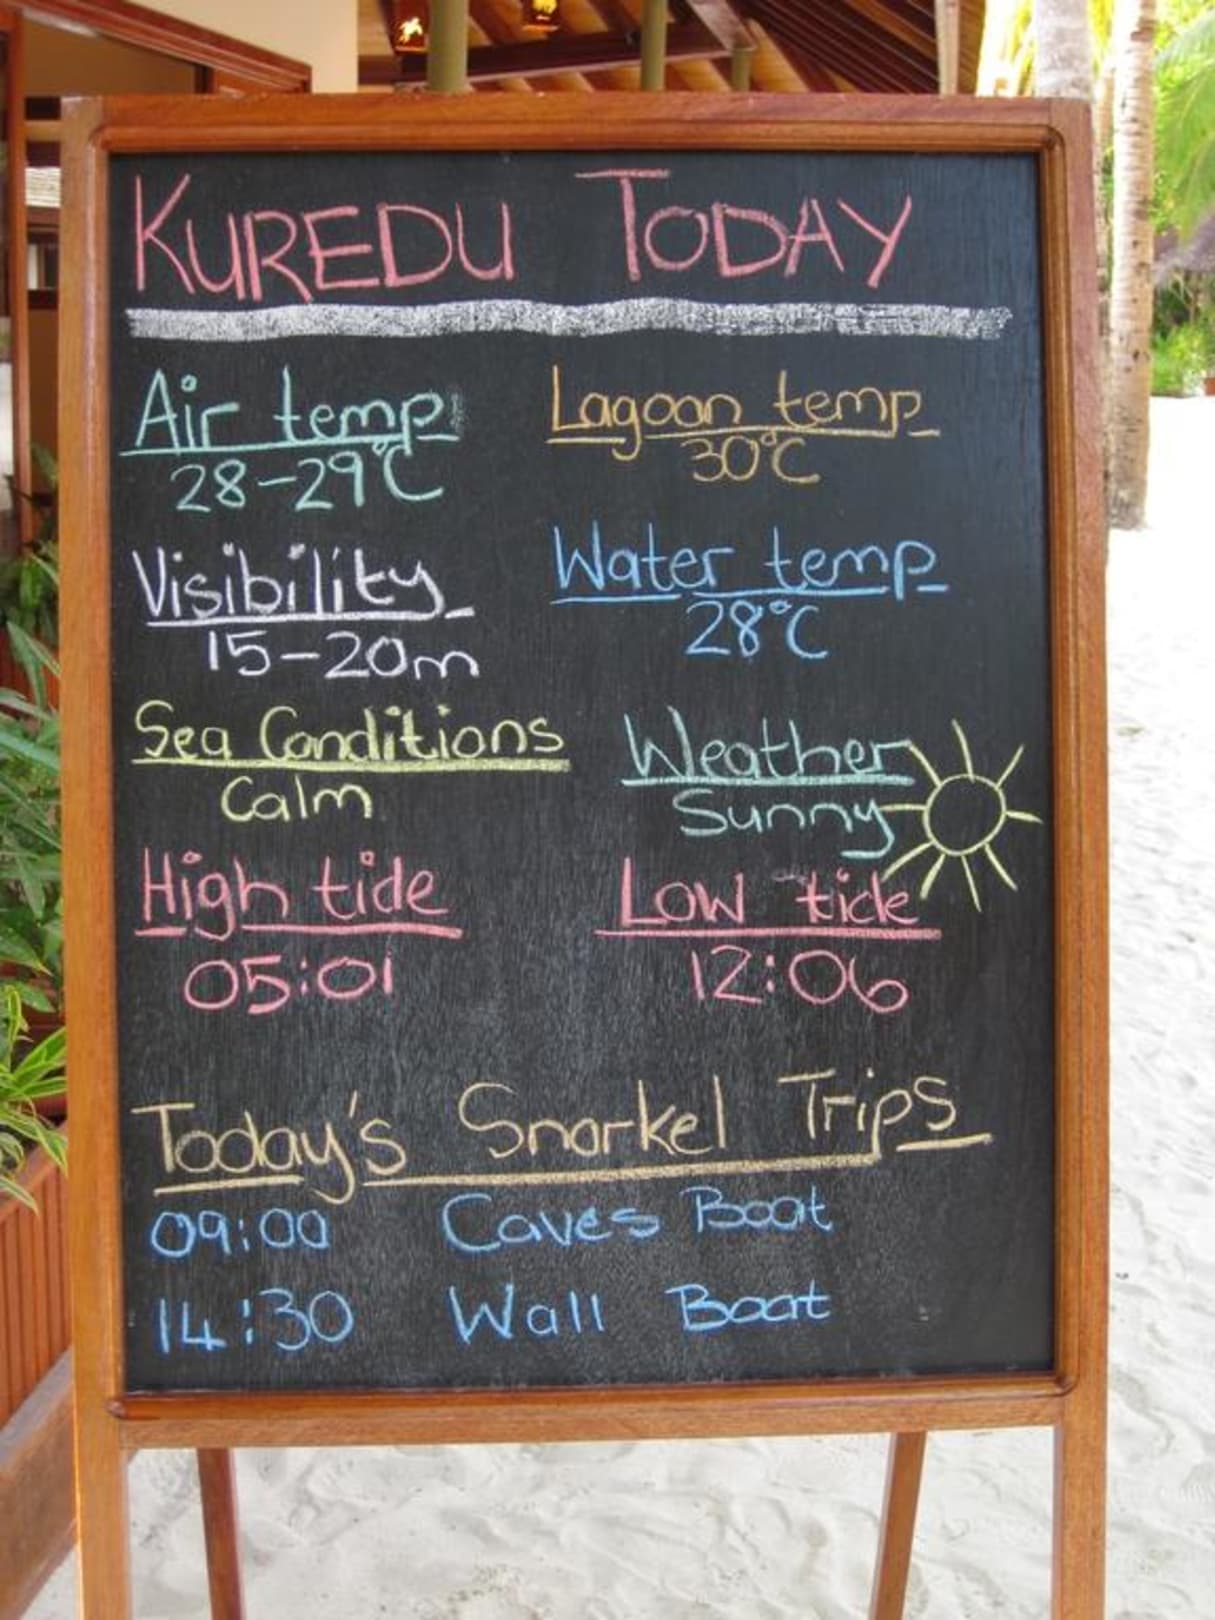 KUREDU TODAY
Air temp
28-29°C
Lagoon temp
30°C
Visibility
15-20m
Water temp
28°C
Sea Conditions
Calm
Weather
Sunny
High tide
05:01
Low tide
12:06
Today's Snorkel Trips
09:00 Caves Boat
14:30 Wall Boat